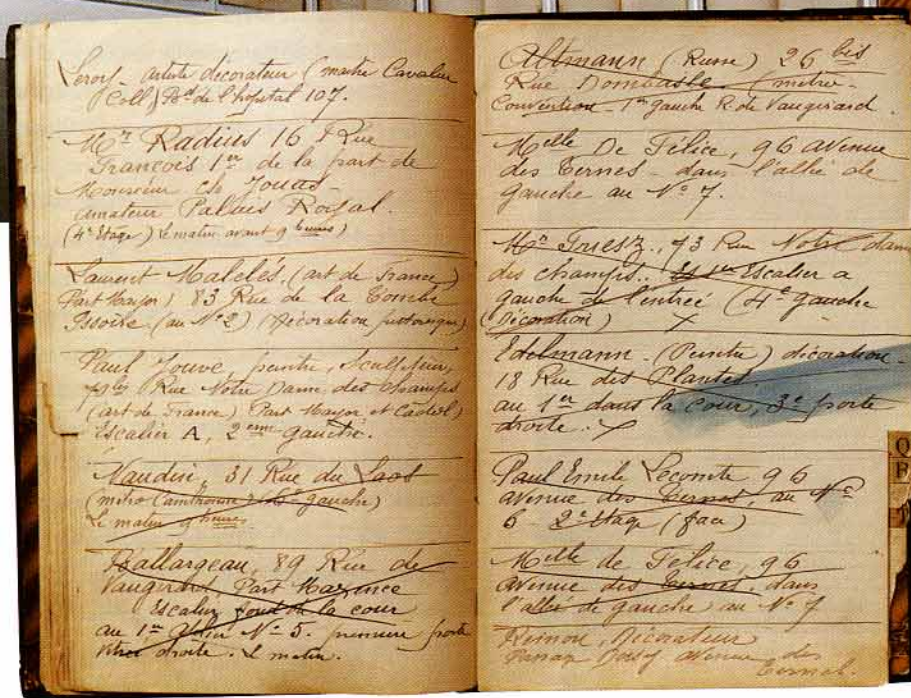 Leroy - artiste décorateur (maître Cavalier
Coll) Bd de l'hôpital 107.
Mr Radius 16 Rue
François 1er de la part de
Monsieur
amateur Palais Royal.
(4e Etage) Le matin avant 9 heures)
Laurent Malclès. (art de France)
Part Mayor) 83 Rue de la Tombe
Issoire (au No 2) (Décoration
Paul Jouve, peintre, Sculpteur,
Rue Notre Dame des Champs
(art de France) Part Mayor et
Escalier A, 2eme gauche.
31 Rue du Laos
(métro gauche)
Le matin 9 heures
Ballargeau, 89 Rue de
Vaugirard, Part
Escalier fond de la cour
au 1er No 5. première porte
droite. Le matin.
Altmann (Russe) 26 bis
Rue Dombasle. (métro
Convention - 1er gauche R. de Vaugirard.
Melle De Félice, 96 avenue
des Ternes - dans l'allée de
gauche au No 7.
73 Rue Notre dame
des champs. Escalier a
gauche de l'entrée (4e gauche
(Décoration) X
Edelmann - (Peintre) décoration -
18 Rue des Plantes.
au 1er dans la cour, 3e porte
droite. X
Paul Emile Lecomte 96
avenue des Ternes, au No
6 - 2e Etage (face)
Melle de Félice, 96
avenue des Ternes. dans
l'allée de gauche au No 7
Décorateur
avenue des
Ternes.
Q